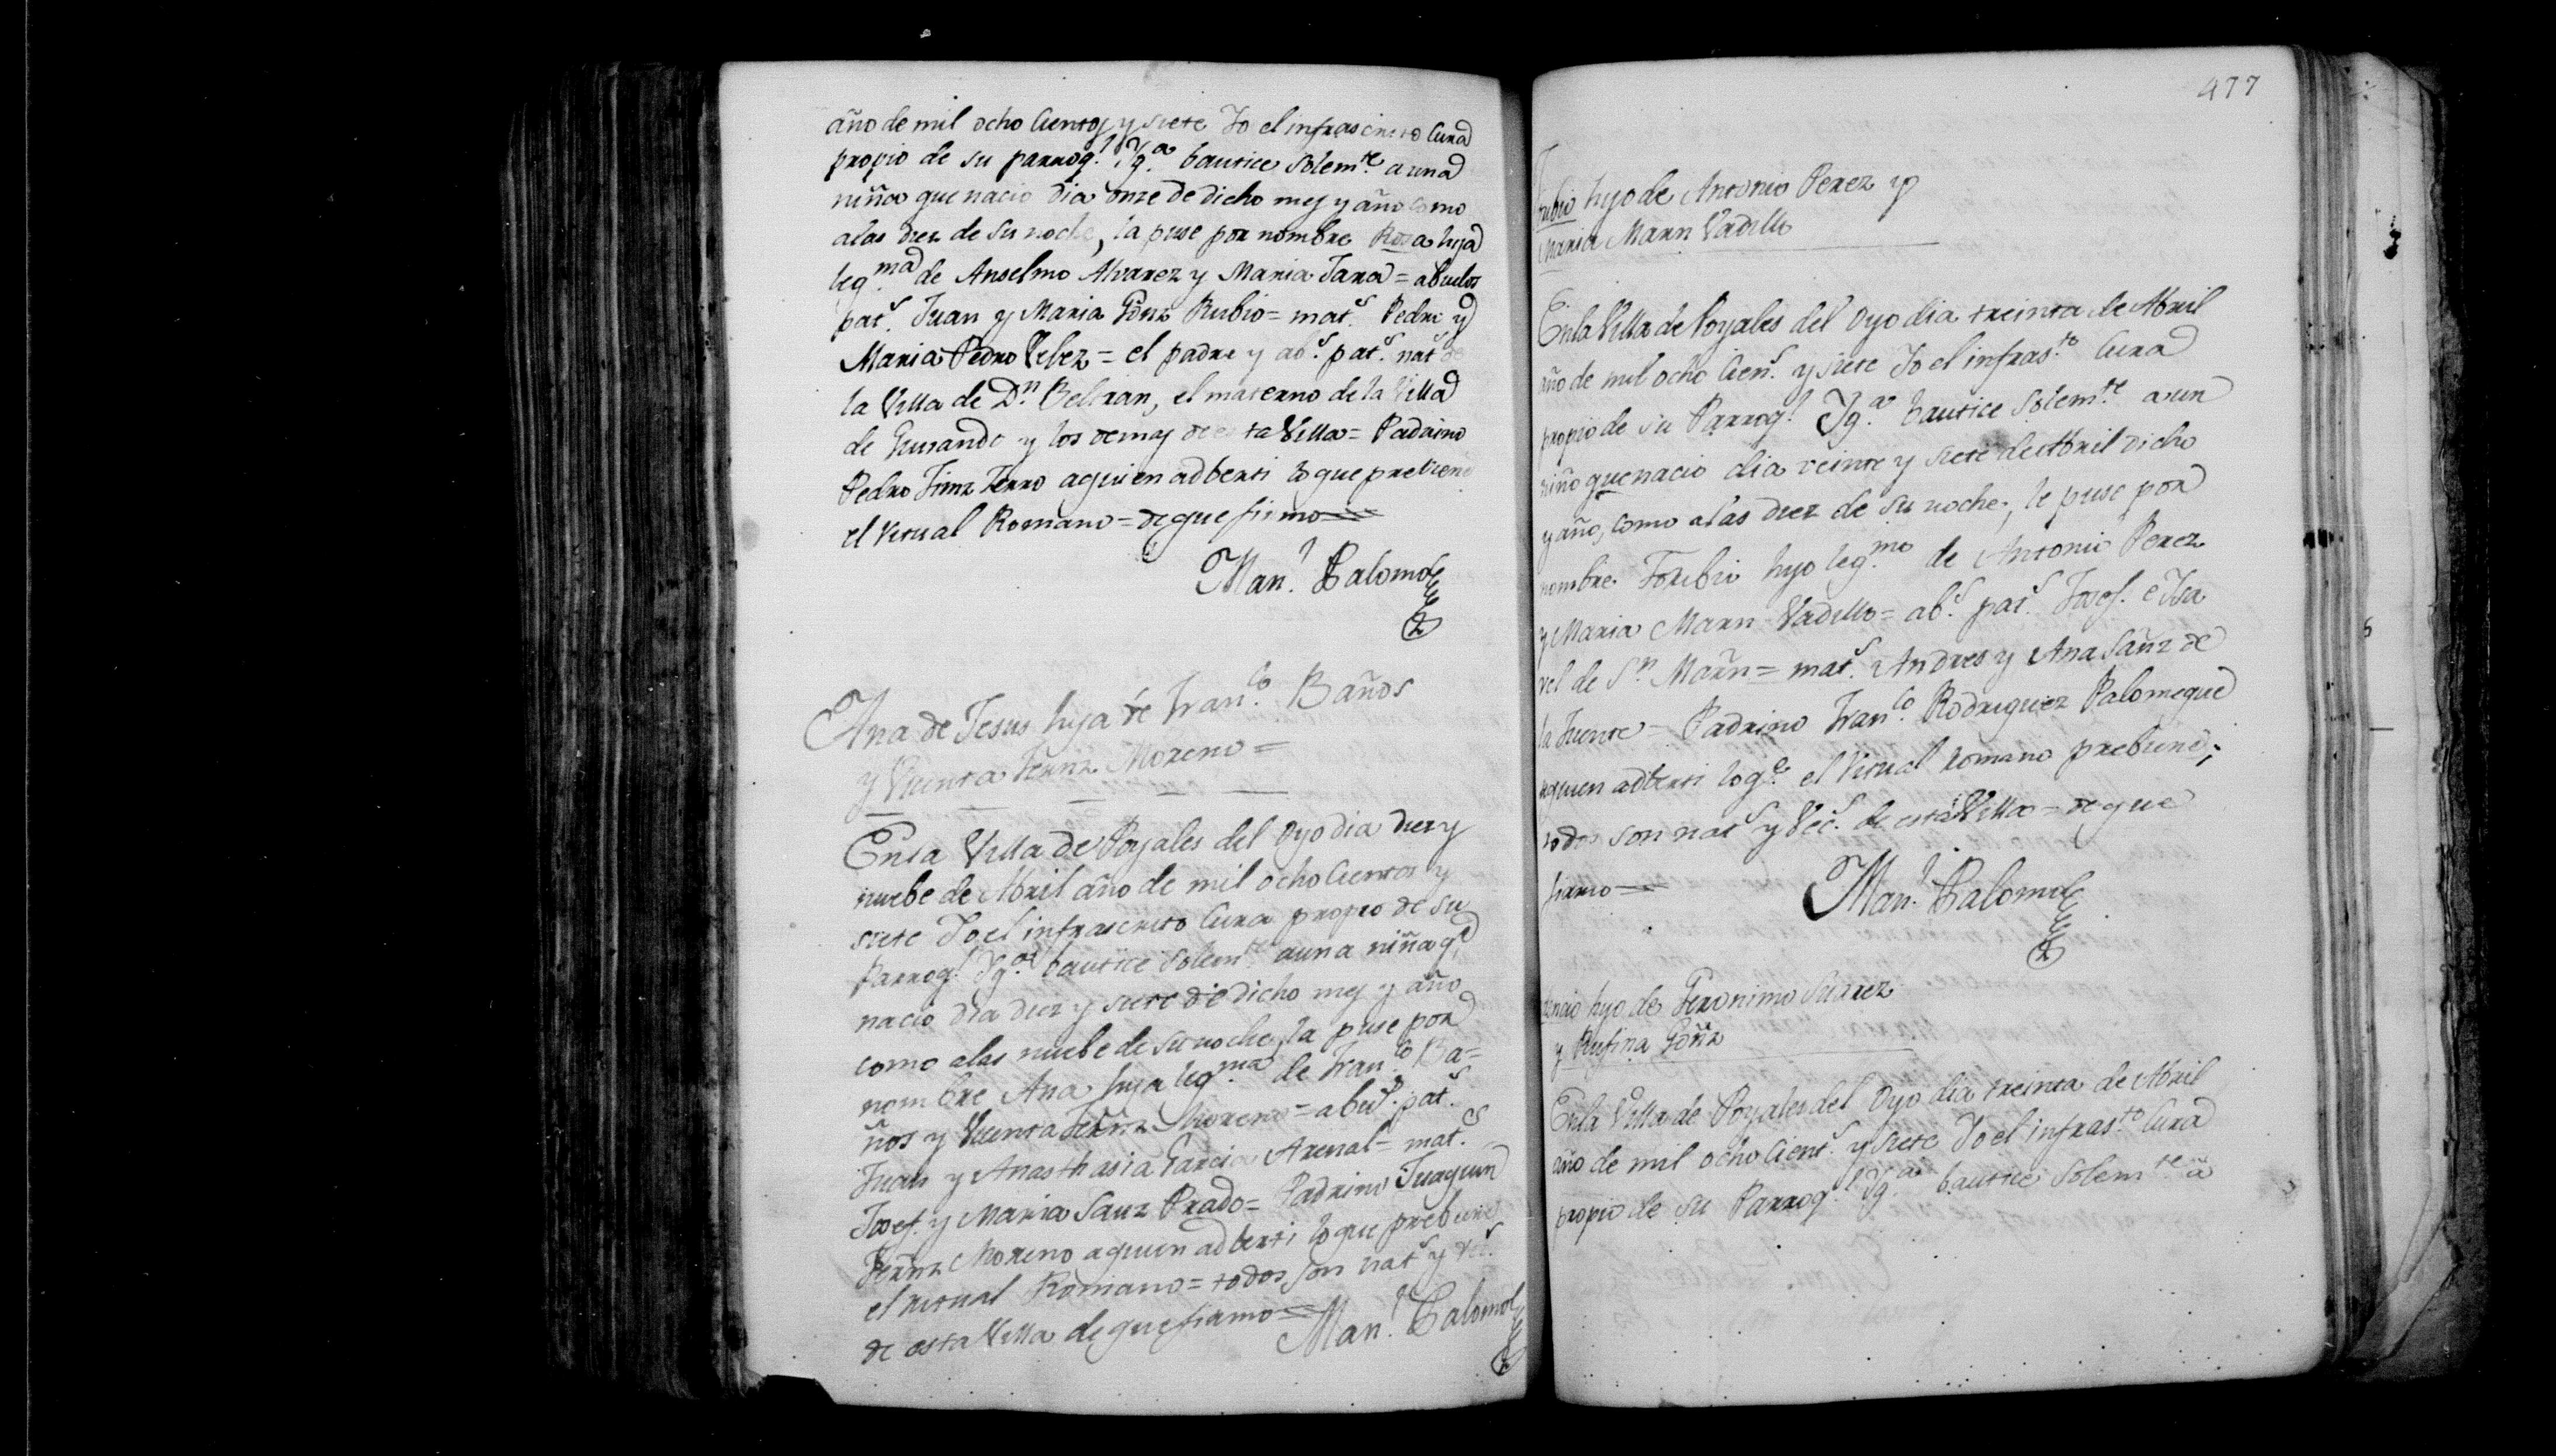 año de mil ocho cientos y siete Yo el infrascrito Cura
propio de su parroq.l Yg.a bautice solem.te a una
niña que nacio dia onze de dicho mes y año como
a las diez de su noche, la puse por nombre Rosa hija
leg.ma de Anselmo Alvarez y Maria Jara = abuelos
pat.s Juan y Maria Gonz Rubio = mat.s Pedro y
Maria Pedro Velez = el padre y ab.s pat.s nat.s de
la Villa de D.n Beltran, el materno de la Villa
de Guisando y los demas de esta Villa = Padrino
Pedro Ferro a quien adberti lo que prebiene
el Ritual Romano = de que firmo =
Man.l Palomo
Ana de Jesus hija de Fran.co Baños
y Vicenta Fernz Moreno =
En la Villa de Poyales del Oyo dia diez y
nuebe de Abril año de mil ocho cientos y
siete Yo el infrascrito Cura propio de su
Parroq.l Yg.a bautice solem.te a una niña q.e
nacio dia diez y siete de dicho mes y año
como a las nuebe de su noche, la puse por
nombre Ana hija leg.ma de Fran.co Ba=
ños y Vicenta Fernz Moreno = abu.s pat.s
Juan y Anasthasia Garcia Arenal = mat.s
Josef. y Maria Sanz Prado = Padrino Juaquin
Fernz Moreno a quien adberti lo que prebiene
el Ritual Romano = todos son nat.s y vec.s
de esta Villa de que firmo =
Man.l Palomo
477
Toribio hijo de Antonio Perez y
Maria Marn Vadillo
En la Villa de Poyales del Oyo dia treinta de Abril
año de mil ocho cien.s y siete Yo el infras.to Cura
propio de su Parroq.l Yg.a bautice solem.te a un
niño que nacio dia veinte y siete de Abril dicho
y año, como a las diez de su noche, le puse por
nombre Toribio hijo leg.mo de Antonio Perez
y Maria Marn Vadillo = ab.s pat.s Josef. e Isa
vel de S.n Marn = mat.s Andres y Ana Sanz de
la Fuente = Padrino Fran.co Rodriguez Palomeque
a quien adberti lo q.e el Ritual Romano prebiene;
todos son nat.s y Vec.s de esta Villa = de que
firmo =
Man.l Palomo
hijo de Geronimo Suarez
y Rufina Gonz
En la Villa de Poyales del Oyo dia treinta de Abril
año de mil ocho cient.s y siete Yo el infras.to Cura
propio de su Parroq.l Yg.a bautice solem.te a